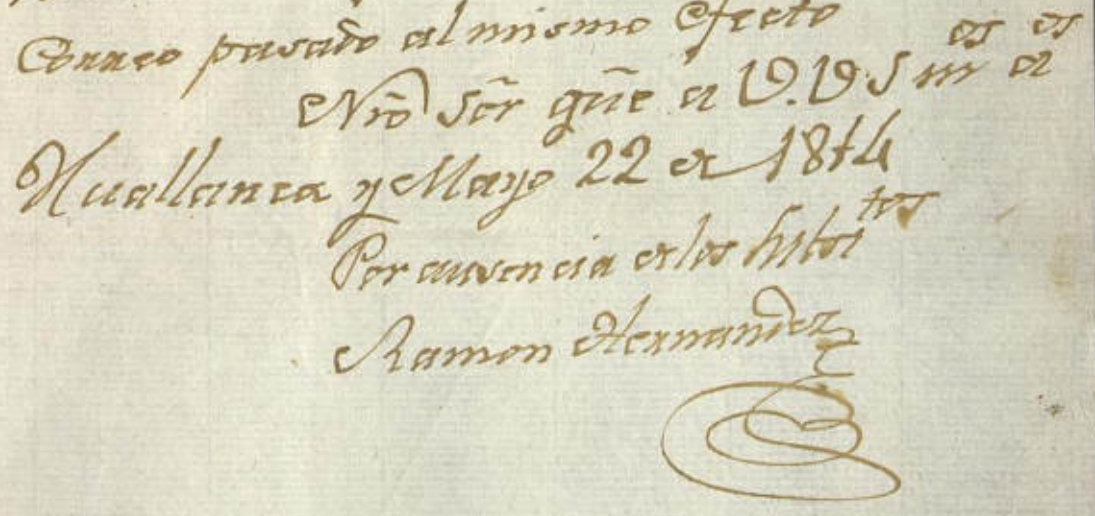 Correo pasado al mismo efecto
Ntrõ Sõr gũe a V.V.S m.os a.s
Huallanca y Mayo 22 de 1814
Por ausencia de los
Ramon Hernandez